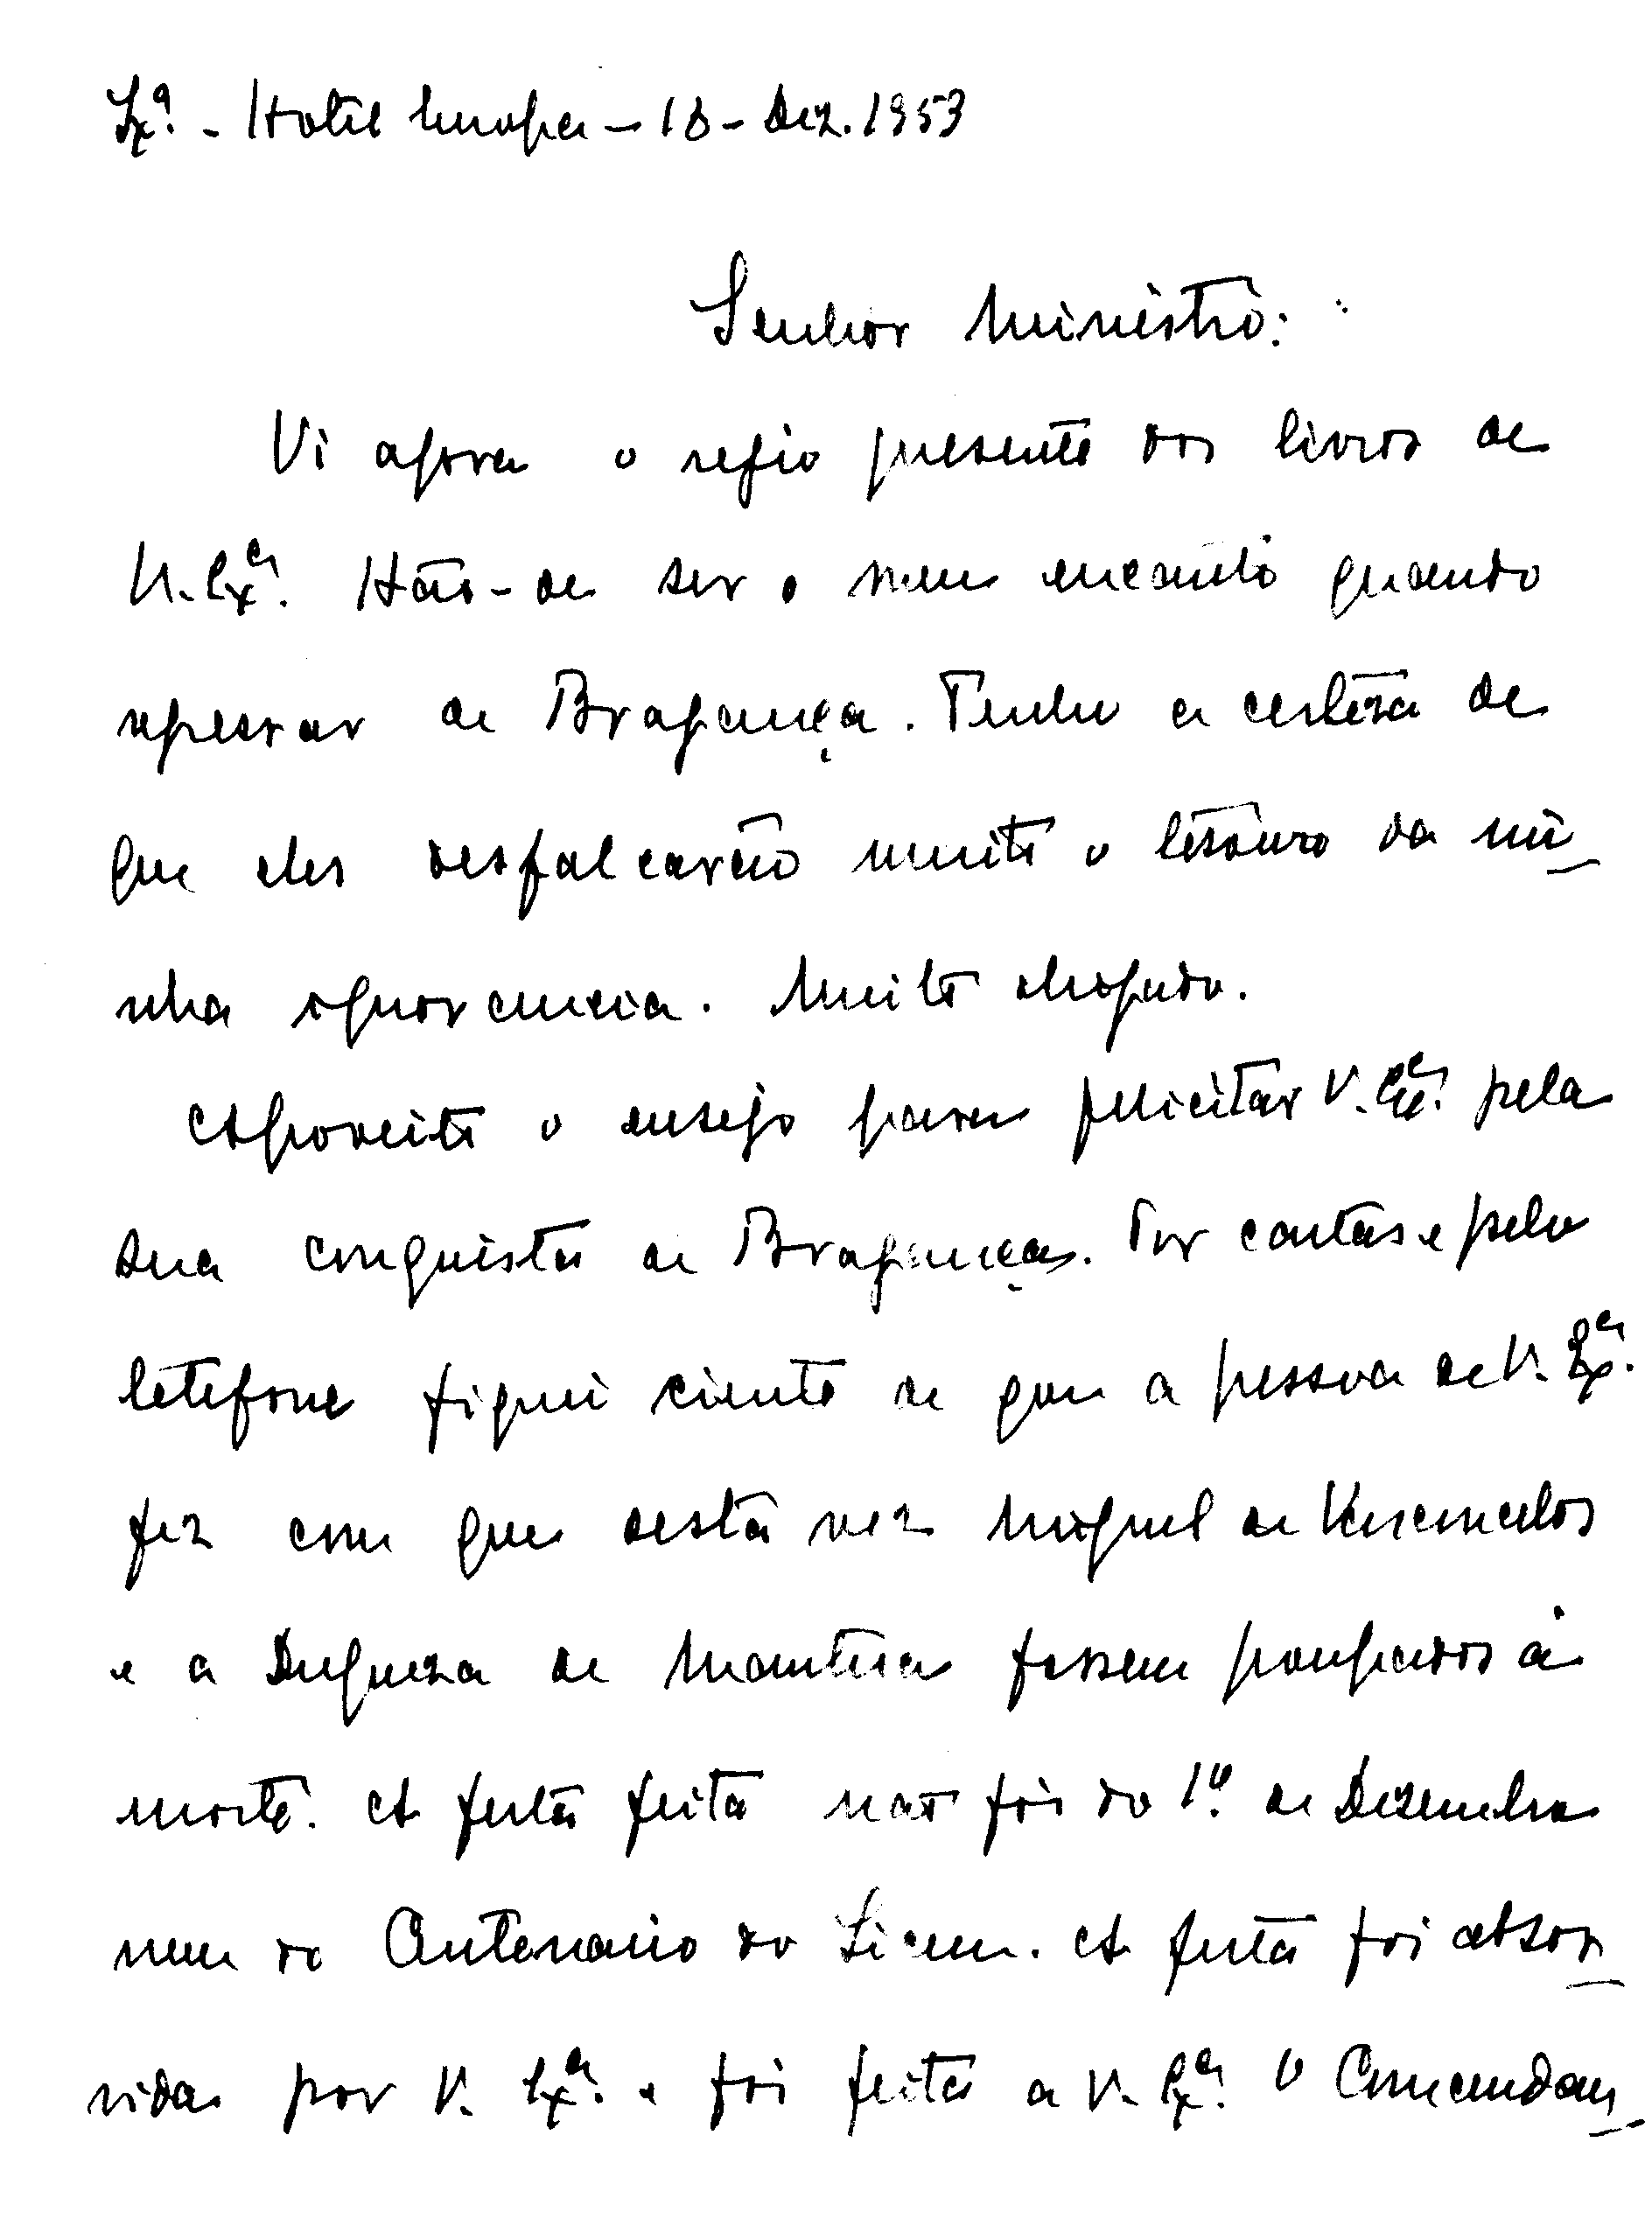 Lxª. - Hotel Europa - 18 - Dez. 1953
Senhor Ministro:
Vi agora o régio presente dos livros de
V. Exª. Hão-de ser o meu encanto quando
regressar de Bragança. Tenho a certeza de
que eles desfalcarão muito o tesouro da mi-
nha ignorancia. Muito obrigado.
Aproveito o ensejo para felicitar V. Exª. pela
sua conquista de Bragança. Por cartas e pelo
telefone fiquei ciente de que a pessoa de V. Exª.
fez com que desta vez Miguel de Vasconcelos
e a Duqueza de Mantua fossem poupados à
morte. A festa feita não foi do 1º. de Dezembro
nem do Centenario do Liceu. A festa foi absor-
vida por V. Exª. e foi feita a V. Exª. O Comendan-